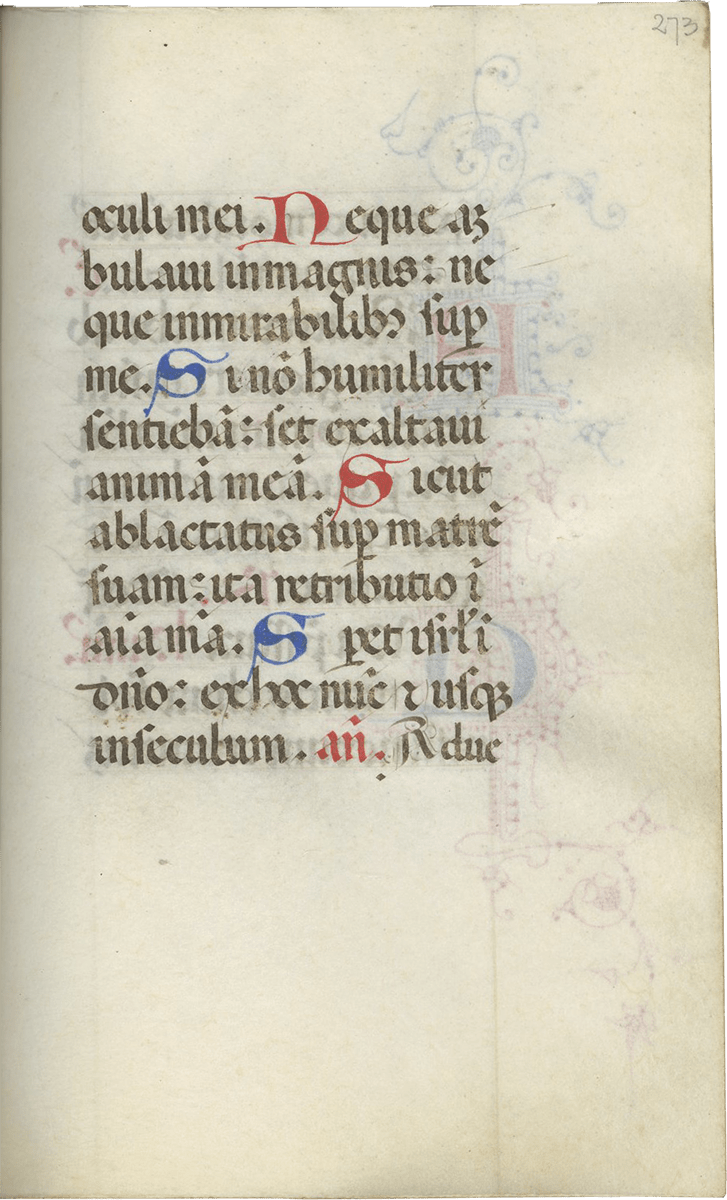 273
oculi mei. Neque am
bulaui in magnis: ne
que in mirabilibꝫ suꝑ
me. Si nō humiliter
sentiebā: set exaltaui
animā meā. Sicut
ablactatus suꝑ matrē
suam: ita retributio ī
aīa mīa. Speret isrl̄ ī
dn̄o: ex hoc nūc ⁊ usqꝫ
in seculum. an̄. Adue